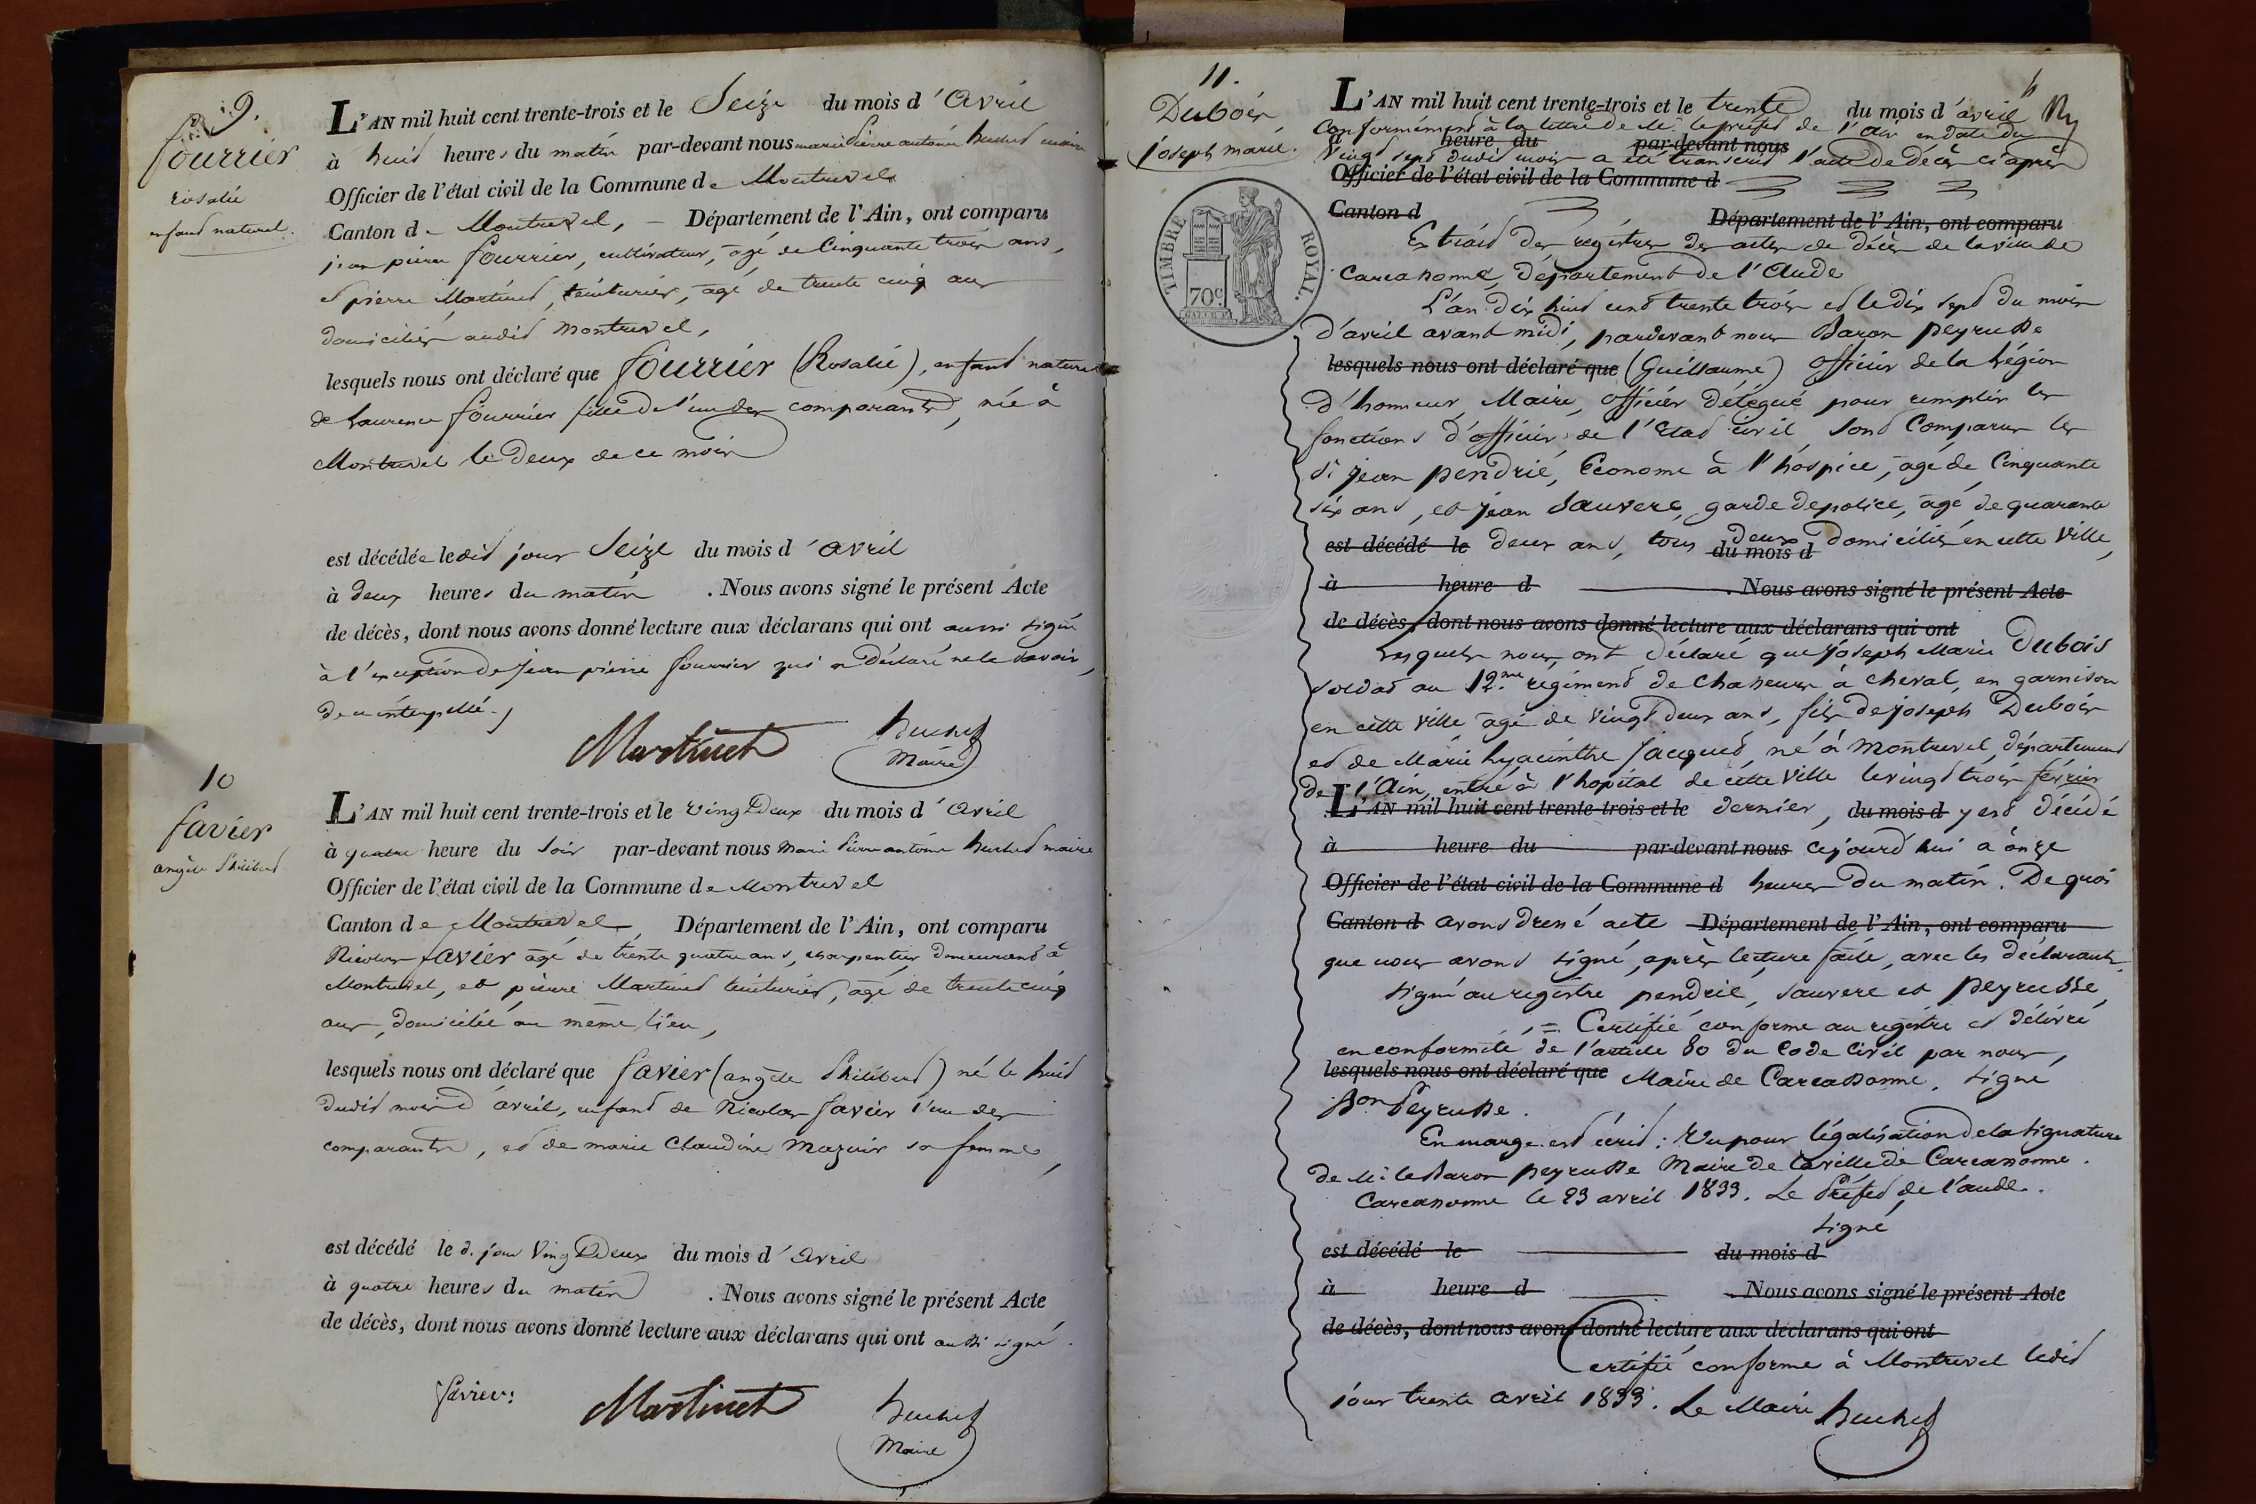 9.
fourrier
rosalie
enfant naturel.
L'AN mil huit cent trente-trois et le Seize du mois d'avril
à huit heures du matin par-devant nous marie Pierre antoine huchet maire
Officier de l'état civil de la Commune de Montrevel
Canton de Montrevel, Département de l'Ain, ont comparu
jean pierre fourrier, cultivateur, âgé de Cinquante trois ans,
et pierre Martinet, teinturier, âgé de trente cinq ans
domiciliés audit montrevel,
lesquels nous ont déclaré que fourrier (Rosalie), enfant naturel
de Laurence fourrier fille de l'un des comparants, née à
Montrevel le deux de ce mois
est décédée ledit jour Seize du mois d'avril
à deux heures du matin. Nous avons signé le présent Acte
de décès, dont nous avons donné lecture aux déclarans qui ont aussi signé
à l'exception de jean pierre fourrier qui a déclaré ne le savoir,
de ce interpellé.
Martinet huchet
Maire
10
favier
angèle Philibert
L'AN mil huit cent trente-trois et le vingt deux du mois d'avril
à quatre heure du soir par-devant nous Marie Pierre antoine huchet maire
Officier de l'état civil de la Commune de Montrevel
Canton de Montrevel, Département de l'Ain, ont comparu
Nicolas favier âgé de trente quatre ans, charpentier demeurant à
Montrevel, et pierre Martinet teinturier, âgé de trente cinq
ans, domicilié au même lieu,
lesquels nous ont déclaré que favier (angèle Philibert) né le huit
dudit mois d'avril, enfant de Nicolas favier l'un des
comparants, et de marie Claudine Mazuir sa femme,
est décédé le d. jour vingt Deux du mois d'avril
à quatre heures du matin. Nous avons signé le présent Acte
de décès, dont nous avons donné lecture aux déclarans qui ont aussi signé.
favier:
Martinet huchet
Maire
11.
Dubois
joseph marie.
TIMBRE ROYAL.
70c.
L'AN mil huit cent trente-trois et le trente du mois d'avril
Conformément à la lettre de Mr. le préfet de l'ain en date du
à heure du par-devant nous
vingt sept dudit mois a été transcrit l'acte de décès ci après
Officier de l'état civil de la Commune d
Canton d Département de l'Ain, ont comparu
Extrait des registres des actes de décès de la ville de
Carcassonne, département de l'Aude
L'an dix huit cent trente trois et le dix sept du mois
d'avril avant midi, pardevant nous Baron peyrusse
lesquels nous ont déclaré que (Guillaume) officier de la Légion
d'honneur, Maire, officier délégué pour remplir les
fonctions d'officier de l'Etat civil, sont Comparus les
Sr. jean pendrié, Econome à l'hospice, âgé de Cinquante
six ans, et jean Sauvere, garde de police, âgé de quarante
est décédé le deux ans, tous deux domiciliés en cette ville,
du mois d
à heure d. Nous avons signé le présent Acte
de décès, dont nous avons donné lecture aux déclarans qui ont
Lesquels nous ont déclaré que joseph Marie Dubois
soldat au 12.me régiment de chasseurs à cheval, en garnison
en cette ville âgé de vingt deux ans, fils de joseph Dubois
et de Marie hyacinthe Jacquet, né à montrevel, département
de l'Ain, entré à l'hopital de cette ville le vingt trois février
L'AN mil huit cent trente-trois et le dernier, du mois d y est décédé
à heure du par-devant nous cejourd'hui à onze
Officier de l'état civil de la Commune d heures du matin. De quoi
Canton d avons dressé acte Département de l'Ain, ont comparu
que nous avons signé, après lecture faite, avec les déclarants.
signé au registre pendrié, sauvere et peyrusse,
= Certifié conforme au registre et délivré
en conformité de l'article 80 du Code Civil par nous,
lesquels nous ont déclaré que Maire de Carcassonne. signé
Bon Peyrusse.
En marge est écrit: Vu pour légalisation de la signature
de Mr. le Baron peyrusse Maire de la ville de Carcassonne.
Carcassonne le 23 avril 1833. Le Préfet de l'aude.
signé
est décédé le du mois d
à heure d. Nous avons signé le présent Acte
de décès, dont nous avons donné lecture aux déclarans qui ont
Certifié conforme à Montrevel ledit
jour trente avril 1833. Le Maire huchet